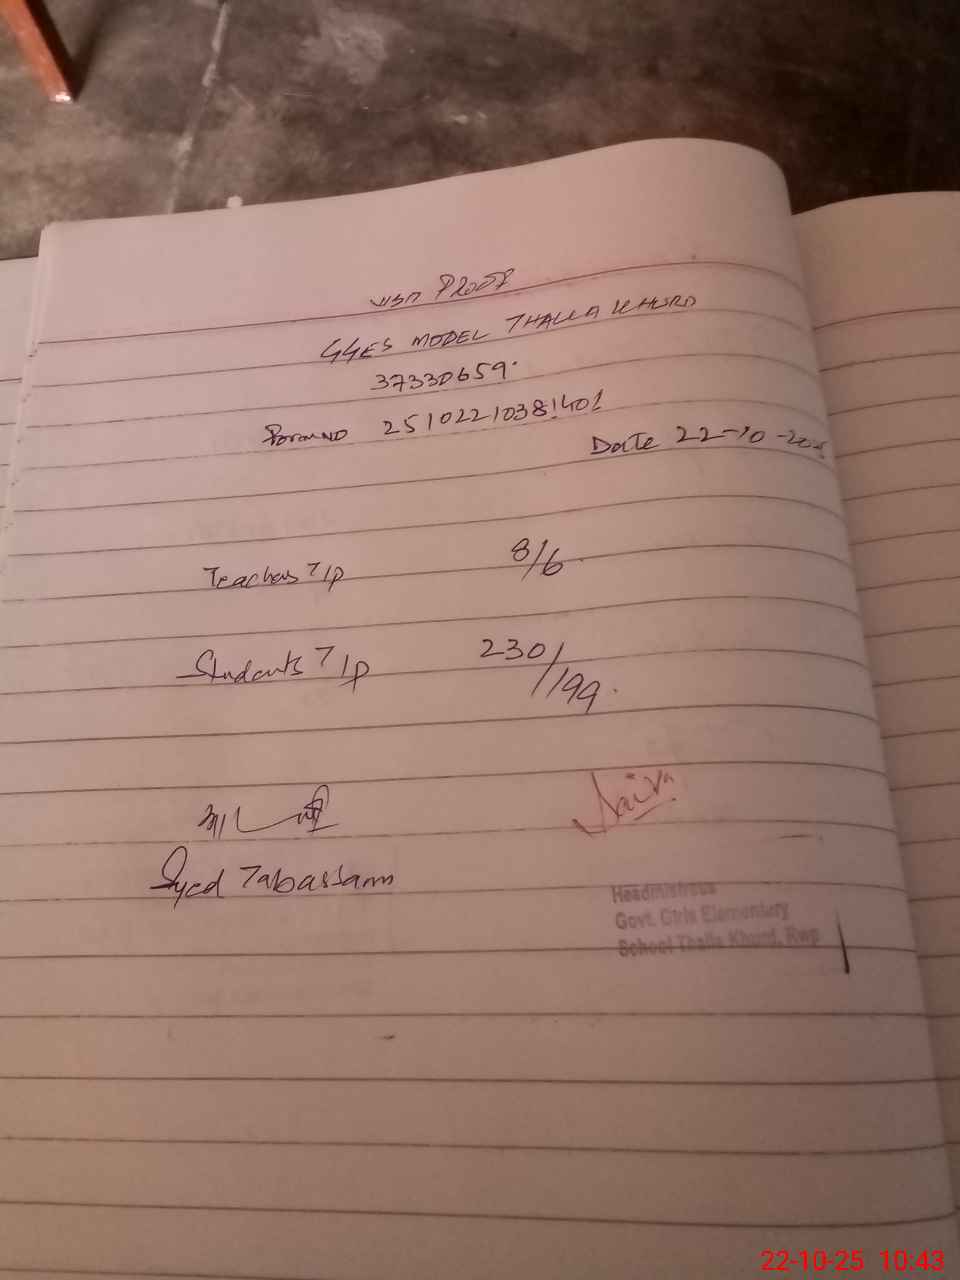 Visit Proof
GGES MODEL THALLA KHURD
37330659.
Form NO 25102210381401
Date 22-10-2025
Teachers T/P 8/6
Students T/P 230/199.
Saira
Syed Tabassam
Headmistress
Govt. Girls Elementary
School Thalla Khurd, Rwp
22-10-25 10:43